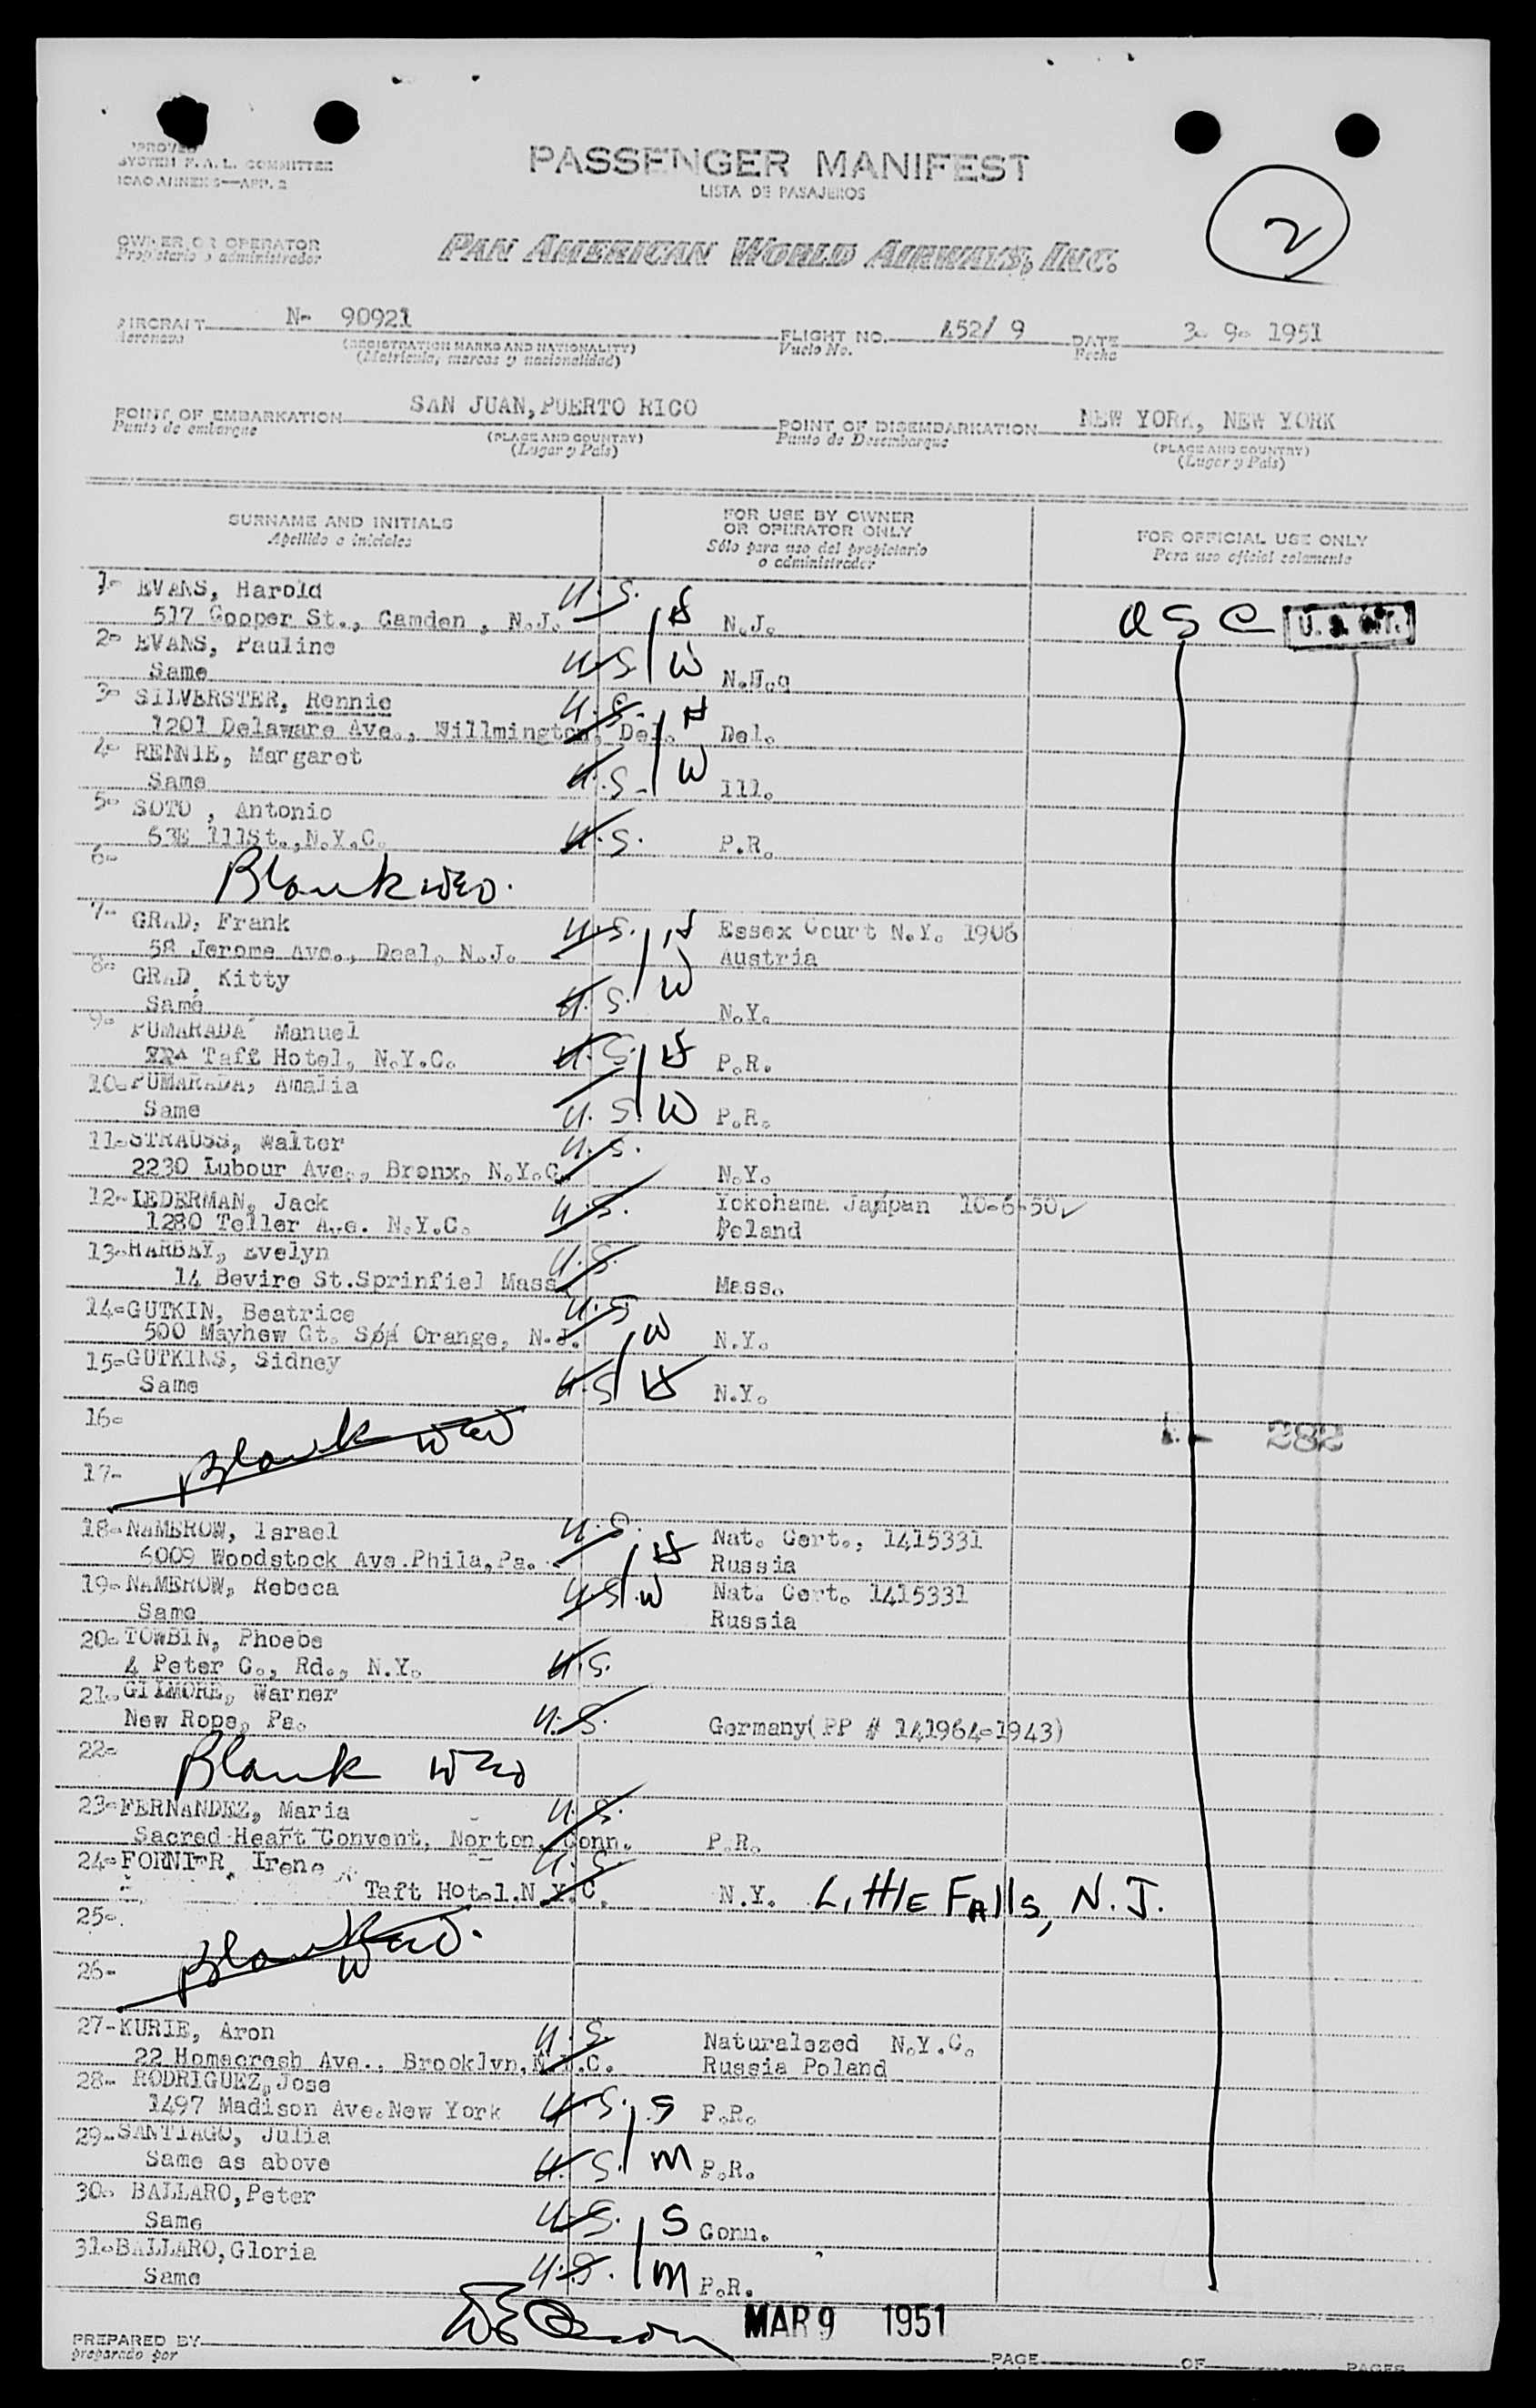 SYSTEM F.A.L. COMMITTEE
ICAO ANNEX 9—APP. 2
PASSENGER MANIFEST
LISTA DE PASAJEROS
2
OWNER OR OPERATOR
Propietario o administrador
PAN AMERICAN WORLD AIRWAYS, INC.
AIRCRAFT N- 90921 FLIGHT NO. 452/ 9 DATE 3- 9- 1951
Aeronave (REGISTRATION MARKS AND NATIONALITY) Vuelo No. Fecha
(Matrícula, marcas y nacionalidad)
POINT OF EMBARKATION SAN JUAN, PUERTO RICO POINT OF DISEMBARKATION NEW YORK, NEW YORK
Punto de embarque (PLACE AND COUNTRY) Punto de Desembarque (PLACE AND COUNTRY)
(Lugar y País) (Lugar y País)
SURNAME AND INITIALS FOR USE BY OWNER OR OPERATOR ONLY FOR OFFICIAL USE ONLY
Apellido e iniciales Sólo para uso del propietario o administrador Para uso oficial solamente
1- EVANS, Harold U.S.
517 Cooper St., Camden , N.J. H N.J. U.S. CIT.
2- EVANS, Pauline
Same U.S. W
3- SILVERSTER, Rennie U.S.
1201 Delaware Ave., Willmington, Del. H Del.
4- RENNIE, Margaret
Same U.S. W Ill.
5- SOTO , Antonio
53E 111St.,N.Y.C. U.S. P.R.
6- Blank
7- GRAD, Frank U.S. H Essex Court N.Y. 1906
58 Jerome Ave., Deal, N.J. Austria
8- GRAD, Kitty W
Same U.S. N.Y.
9- PUMARADA Manuel
Taft Hotel, N.Y.C. U.S. H P.R.
10- PUMARADA, Amalia
Same U.S. W P.R.
11- STRAUSS, Walter U.S.
2230 Lubour Ave., Bronx, N.Y.C. N.Y.
12- LEDERMAN, Jack U.S. Yokohama Jappan 10-6-50
1280 Teller Ave. N.Y.C. Poland
13- HARBAY, Evelyn U.S.
14 Bevire St.Sprinfiel Mass. Mass.
14- GUTKIN, Beatrice U.S.
500 Mayhew Ct. Orange, N.J. W N.Y.
15- GUTKINS, Sidney
Same U.S. H N.Y.
16- Blank 282
17-
18- NAMEROW, Israel U.S. Nat. Cert., 1415331
6009 Woodstock Ave.Phila,Pa. H Russia
19- NAMEROW, Rebeca U.S. W Nat. Cert. 1415331
Same Russia
20- TOWBIN, Phoebe
4 Peter C., Rd., N.Y. U.S.
21- GILMORE, Warner
New Rope, Pa. U.S. Germany( PP # 141964-1943)
22- Blank
23- FERNANDEZ, Maria U.S.
Sacred Heart Convent, Norton, Conn. P.R.
24- FORNIER, Irene U.S.
Taft Hotel.N.Y.C. N.Y. LittlE FAlls, N.J.
25- Blank
26-
27- KURIE, Aron U.S. Naturalezed N.Y.C.
22 Homecresh Ave., Brooklyn, N.Y.C. Russia Poland
28- RODRIGUEZ,Jose
1497 Madison Ave.New York U.S. S P.R.
29- SANTIAGO, Julia
Same as above U.S. M P.R.
30- BALLARO,Peter
Same U.S. S Conn.
31- BALLARO,Gloria
Same U.S. M P.R.
MAR 9 1951
PREPARED BY
preparado por
PAGE OF PAGES